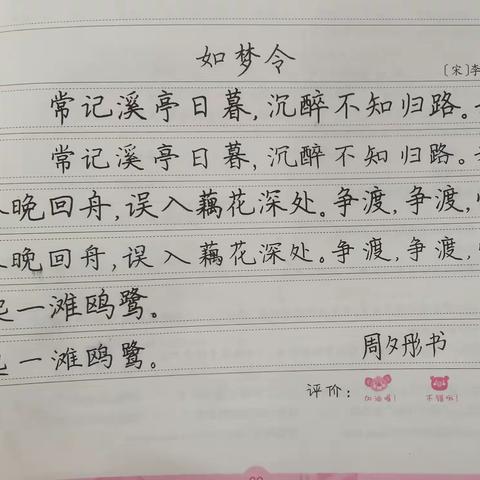 如梦令
〔宋〕李
常记溪亭日暮,沉醉不知归路。
常记溪亭日暮,沉醉不知归路。
晚回舟,误入藕花深处。争渡,争渡,
晚回舟,误入藕花深处。争渡,争渡,
起一滩鸥鹭。
起一滩鸥鹭。
周夕彤书
评价:
加油哦!
不错哦!